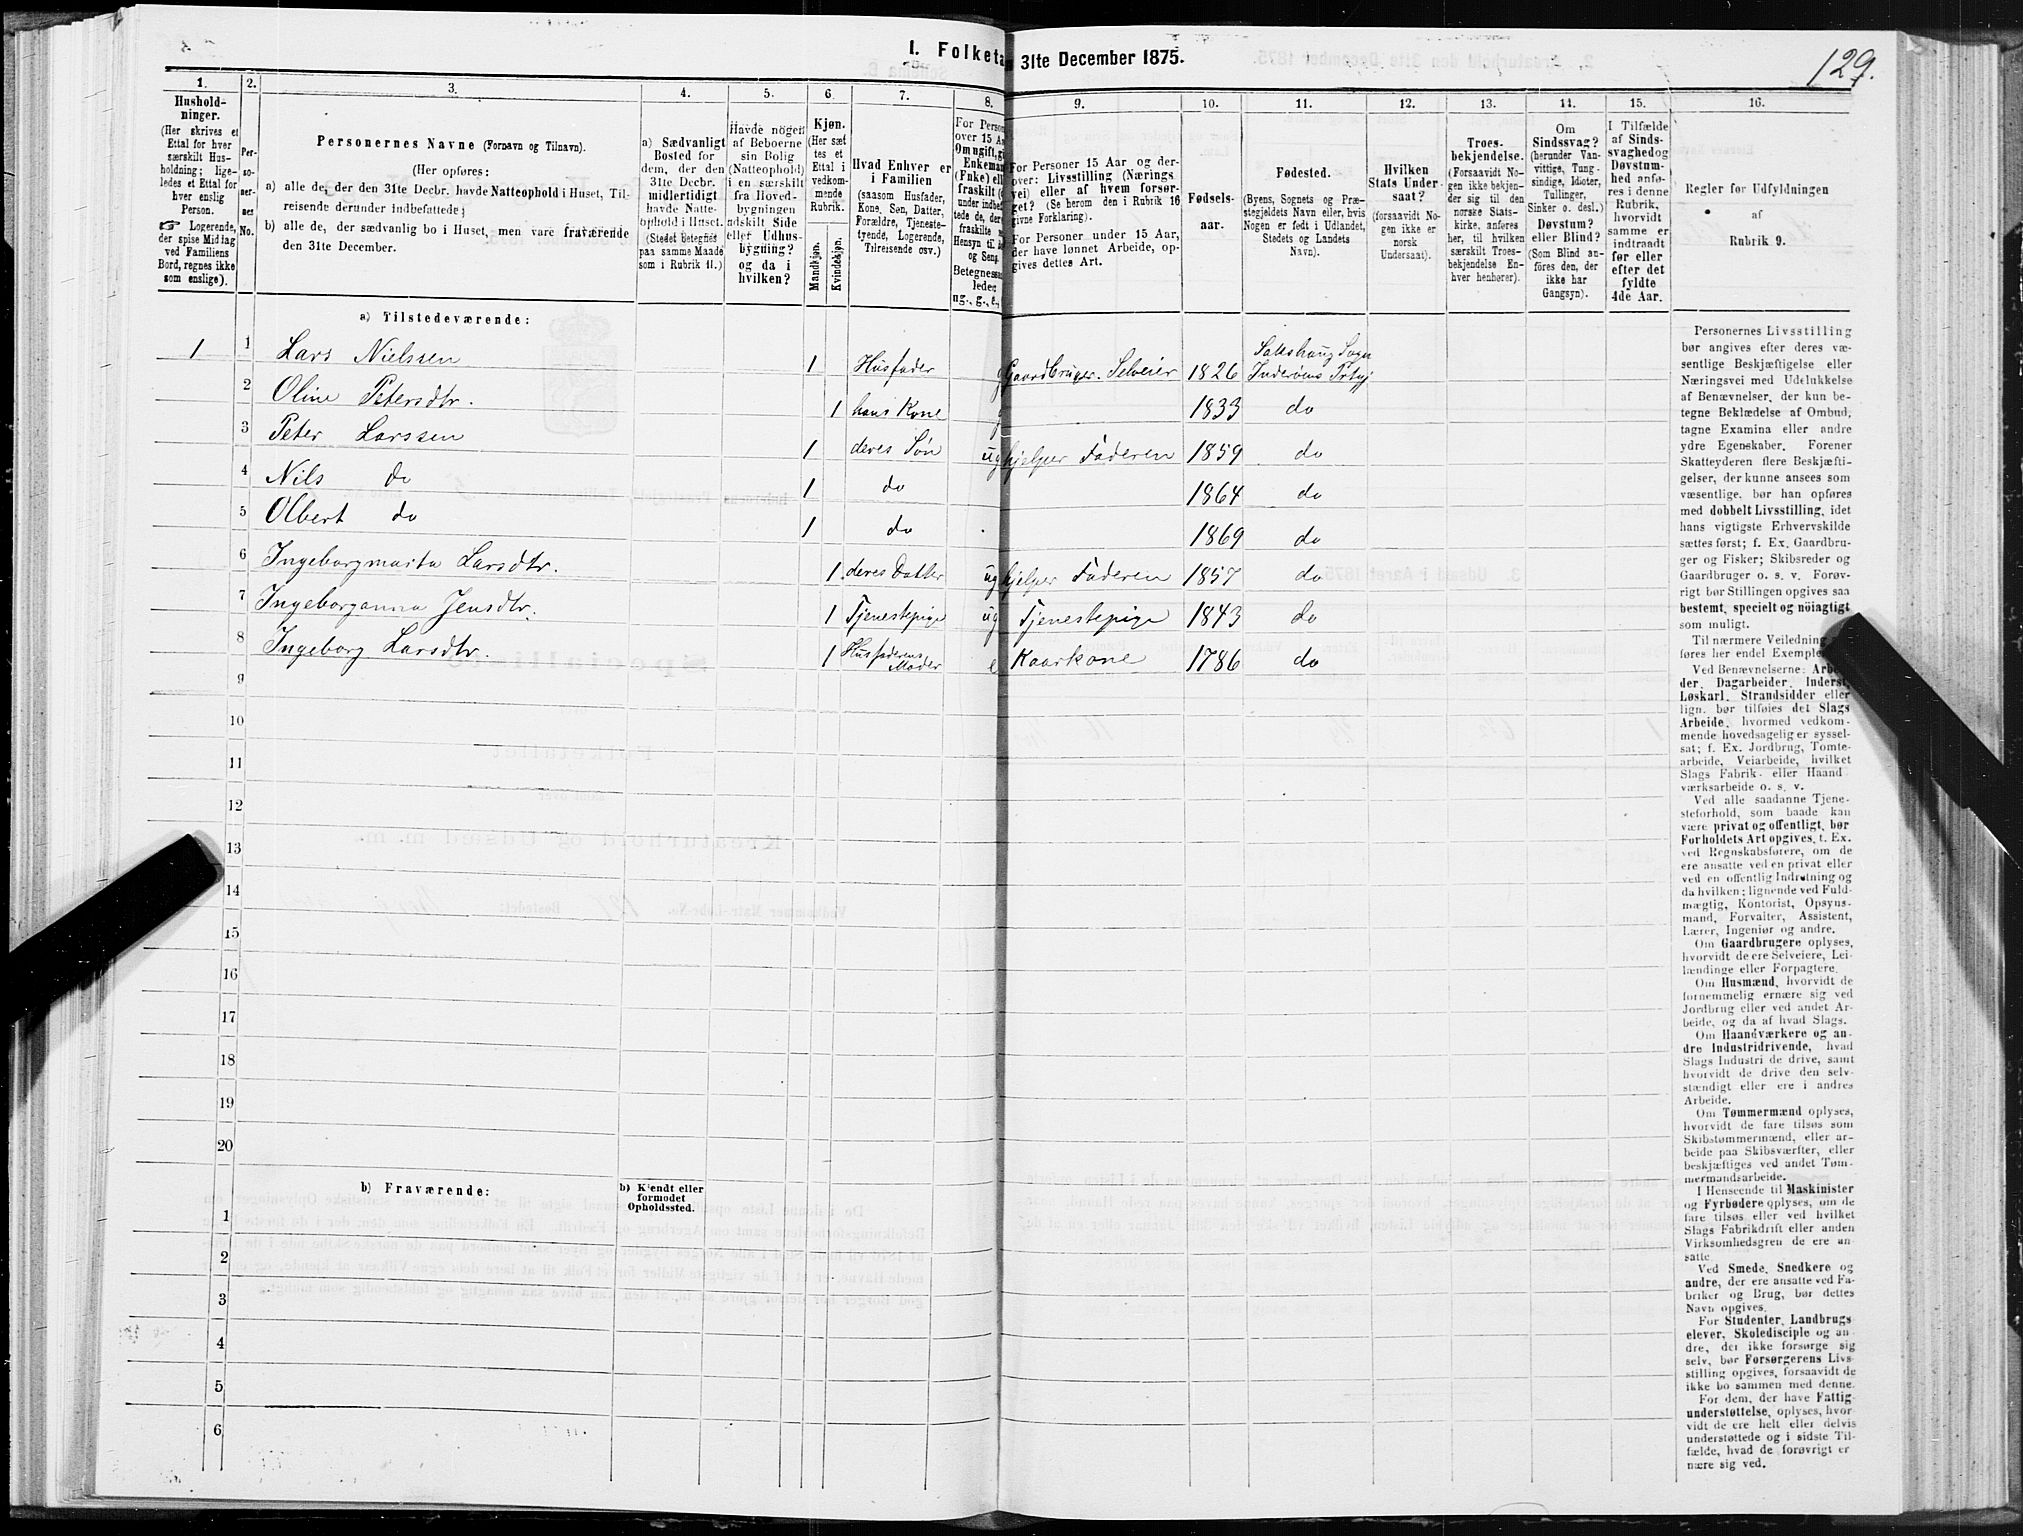 129.
I. Folketa 31te December 1875.
1. 2. 3. 4. 5. 6. 7. 8. 9. 10. 11. 12. 13. 14. 15. 16.
Hushold-
ninger.
(Her skrives et
Ettal for hver
særskilt Hus-
holdning; lige-
ledes et Ettal for
hver enslig
Person.
☞ Logerende,
der spise Middag
ved Familiens
Bord, regnes ikke
som enslige).
Per-
so-
ner-
nes
No.
Personernes Navne (Fornavn og Tilnavn).
(Her opføres:
a) alle de, der den 31te Decbr. havde Natteophold i Huset, Til-
reisende derunder indbefattede;
b) alle de, der sædvanlig bo i Huset, men vare fraværende
den 31te December.
a) Sædvanligt
Bosted for
dem, der den
31te Decbr.
midlertidigt
havde Natte-
ophold i Huset.
(Stedet betegnes
paa samme Maade
som i Rubrik 11.)
Havde nogen
af Beboerne
sin Bolig
(Natteophold)
i en særskilt
fra Hoved-
bygningen
adskilt Side
eller Udhus-
bygning?
og da i
hvilken?
Kjøn.
(Her sæt
tes et
Ettal i
vedkom-
mende
Rubrik.
Mandkjøn.
Kvindekjøn.
Hvad Enhver er
i Familien
(saasom Husfader,
Kone, Søn, Datter,
Forældre, Tjeneste-
tyende, Logerende,
Tilreisende osv.)
For Person
over 15 Aa
Om ugift, gi
Enkeman
(Fnke) ell
fraskilt (
under indbe
tede de, der
fraskilte
Hensyn til
og Seng
Betegnes
ledes
ug., g., e.,
For Personer 15 Aar og der-
over: Livsstilling (Nærings
vei) eller af hvem forsør-
get? (Se herom den i Rubrik 16
givne Forklaring).
For Personer under 15 Aar,
der have lønnet Arbeide, op-
gives dettes Art.
Fødsels-
aar.
Fødested.
(Byens, Sognets og Præ-
stegjeldets Navn eller, hvis
Nogen er født i Udlandet,
Stedets og Landets
Navn).
Hvilken
Stats Under-
saat?
(forsaavidt No-
gen ikke er
norsk
Undersaat).
Troes-
bekjendelse.
(Forsaavidt No-
gen ikke bekjen-
der sig til den
norske Stats-
kirke, anføres
her, til hvilken
særskilt Troes-
bekjendelse En-
hver henhører).
Om
Sindssvag?
(herunder Van-
vittige, Tung-
sindige, Idioter,
Tullinger,
Sinker o. desl.)
Døvstum?
eller Blind?
(Som Blind an-
føres den, der
ikke har
Gangsyn).
I Tilfælde
af Sinds-
svaghed og
Døvstum-
hed anfø-
res i denne
Rubrik,
hvorvidt
samme er
indtraadt
før eller
efter det
fyldte
4de Aar.
Regler for Udfyldningen
af
Rubrik 9.
a) Tilstedeværende:
1 1 Lars Nielssen 1 Husfader g Gaardbruger. Selveier 1826 Sakshaug Sogn Inderøens Prtgj
2 Oline Petersdtr. 1 hans Kone g 1833 do
3 Peter Larssen 1 deres Søn ug hjelper Faderen 1859 do
4 Nils do 1 do 1864 do
5 Olbert do 1 do 1869 do
6 Ingeborgmarta Larsdtr. 1 deres Datter ug hjelper Faderen 1857 do
7 Ingeborganna Jensdtr. 1 Tjenestepige ug Tjenestepige 1843 do
8 Ingeborg Larsdtr. 1 Husfaderens Moder e Kaarkone 1786 do
9
10
11
12
13
14
15
16
17
18
19
20
b) Fraværende: b) Kjendt eller
formodet
Opholdssted.
1
2
3
4
5
6
Personernes Livsstilling
bør angives efter deres væ-
sentlige Beskjæftigelse eller
Næringsvei med Udelukkelse
af Benævnelser, der kun be-
tegne Beklædelse af Ombud,
tagne Examina eller andre
ydre Egenskaber. Forener
Skatteyderen flere Beskjæfti-
gelser, der kunne ansees som
væsentlige, bør han opføres
med dobbelt Livsstilling, idet
hans vigtigste Erhvervskilde
sættes først; f. Ex. Gaardbru-
ger og Fisker; Skibsreder og
Gaardbruger o. s. v. Forøv-
rigt bør Stillingen opgives saa
bestemt, specielt og nøiagtigt
som muligt.
Til nærmere Veiledning
føres her endel Exempler
Ved Benævnelserne: Arbei-
der, Dagarbeider, Inderst,
Løskarl, Strandsidder eller
lign. bør tilføies det Slags
Arbeide, hvormed vedkom-
mende hovedsagelig er syssel-
sat; f. Ex. Jordbrug, Tomte-
arbeide, Veiarbeide, hvilket
Slags Fabrik- eller Haand
værksarbeide o. s. v.
Ved alle saadanne Tjene-
steforhold, som baade kan
være privat og offentligt, bør
Forholdets Art opgives, t. Ex.
ved Regnskabsførere, om de
ere ansatte ved en privat eller
ved en offentlig Indretning og
da hvilken; lignende ved Fuld-
mægtig, Kontorist, Opsyns-
mand, Forvalter, Assistent,
Lærer, Ingeniør og andre.
Om Gaardbrugere oplyses,
hvorvidt de ere Selveiere, Lei-
lændinge eller Forpagtere.
Om Husmænd, hvorvidt de
fornemmelig ernære sig ved
Jordbrug eller ved andet Ar-
beide, og da af hvad Slags.
Om Haandværkere og an-
dre Industridrivende, hvad
Slags Industri de drive, samt
hvorvidt de drive den selv-
stændigt eller ere i andres
Arbeide.
Om Tømmermænd oplyses,
hvorvidt de fare tilsøs som
Skibstømmermænd, eller ar-
beide paa Skibsværfter, eller
beskjæftiges ved andet Tøm-
mermandsarbeide.
I Henseende til Maskinister
og Fyrbødere oplyses, om de
fare tilsøs eller ved hvilket
Slags Fabrikdrift eller anden
Virksomhedsgren de ere an-
satte
Ved Smede, Snedkere og
andre, der ere ansatte ved Fa-
briker og Brug, bør dettes
Navn opgives.
For Studenter, Landbrugs
elever, Skoledisciple og an-
dre, der ikke forsørge sig
selv, bør Forsørgerens Livs-
stilling opgives, forsaavidt de
ikke bo sammen med denne.
For dem, der have Fattig-
understøttelse, oplyses, hvor-
vidt de ere helt eller delvis
understøttede og i sidste Til-
fælde, hvad de forøvrigt er
nære sig ved.